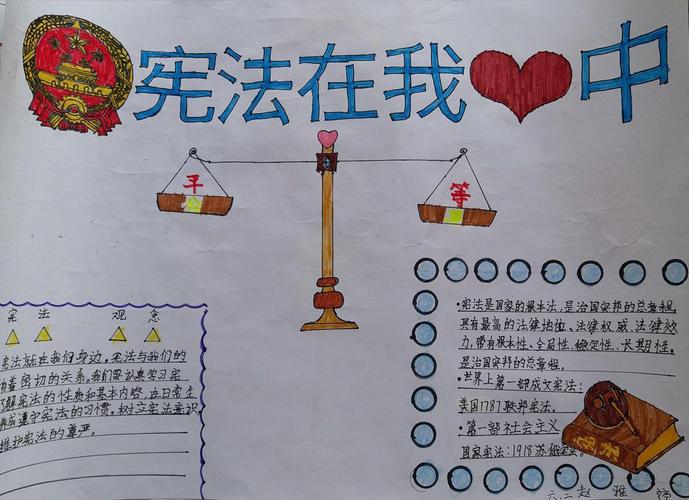 宪法在我中
平 等
公
宪 法 观 念
宪法就在我们身边,宪法与我们的
着密切的关系,我们要认真学习宪
了解宪法的性质和基本内容,在日常生
养成遵守宪法的习惯,树立宪法意识,
维护宪法的尊严。
·宪法是国家的根本法,是治国安邦的总章程,
具有最高的法律地位、法律权威、法律效
力,带有根本性、全局性、稳定性、长期性,
是治国安邦的总章程。
·世界上第一部成文宪法:
美国1787联邦宪法。
·第一部社会主义
国家宪法:1918苏俄宪法
宪法
六、二 赵 雅